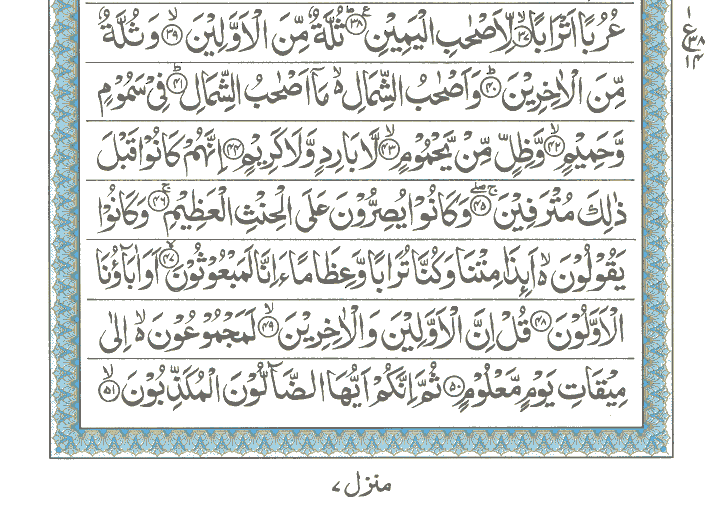 عُرُبًا اَتْرَابًا ۙ﴿۳۷﴾ لِّاَصْحٰبِ الْيَمِيْنِ ؕ﴿۳۸﴾ ع ثُلَّةٌ مِّنَ الْاَوَّلِيْنَ ۙ﴿۳۹﴾ وَ ثُلَّةٌ
مِّنَ الْاٰخِرِيْنَ ؕ﴿۴۰﴾ وَ اَصْحٰبُ الشِّمَالِ ۙ۬ مَاۤ اَصْحٰبُ الشِّمَالِ ؕ﴿۴۱﴾ فِيْ سَمُوْمٍ
وَّ حَمِيْمٍ ۙ﴿۴۲﴾ وَّ ظِلٍّ مِّنْ يَّحْمُوْمٍ ۙ﴿۴۳﴾ لَّا بَارِدٍ وَّ لَا كَرِيْمٍ ﴿۴۴﴾ اِنَّهُمْ كَانُوْا قَبْلَ
ذٰلِكَ مُتْرَفِيْنَ ۚۖ﴿۴۵﴾ وَ كَانُوْا يُصِرُّوْنَ عَلَى الْحِنْثِ الْعَظِيْمِ ۚ﴿۴۶﴾ وَ كَانُوْا
يَقُوْلُوْنَ ۙ۬ اَىِٕذَا مِتْنَا وَ كُنَّا تُرَابًا وَّ عِظَامًا ءَاِنَّا لَمَبْعُوْثُوْنَ ۙ﴿۴۷﴾ اَوَ اٰبَآؤُنَا
الْاَوَّلُوْنَ ﴿۴۸﴾ قُلْ اِنَّ الْاَوَّلِيْنَ وَ الْاٰخِرِيْنَ ۙ﴿۴۹﴾ لَمَجْمُوْعُوْنَ ۙ۬ اِلٰى
مِيْقَاتِ يَوْمٍ مَّعْلُوْمٍ ﴿۵۰﴾ ثُمَّ اِنَّكُمْ اَيُّهَا الضَّآلُّوْنَ الْمُكَذِّبُوْنَ ۙ﴿۵۱﴾
۱
ع ۳۸
۱۴
منزل ۷